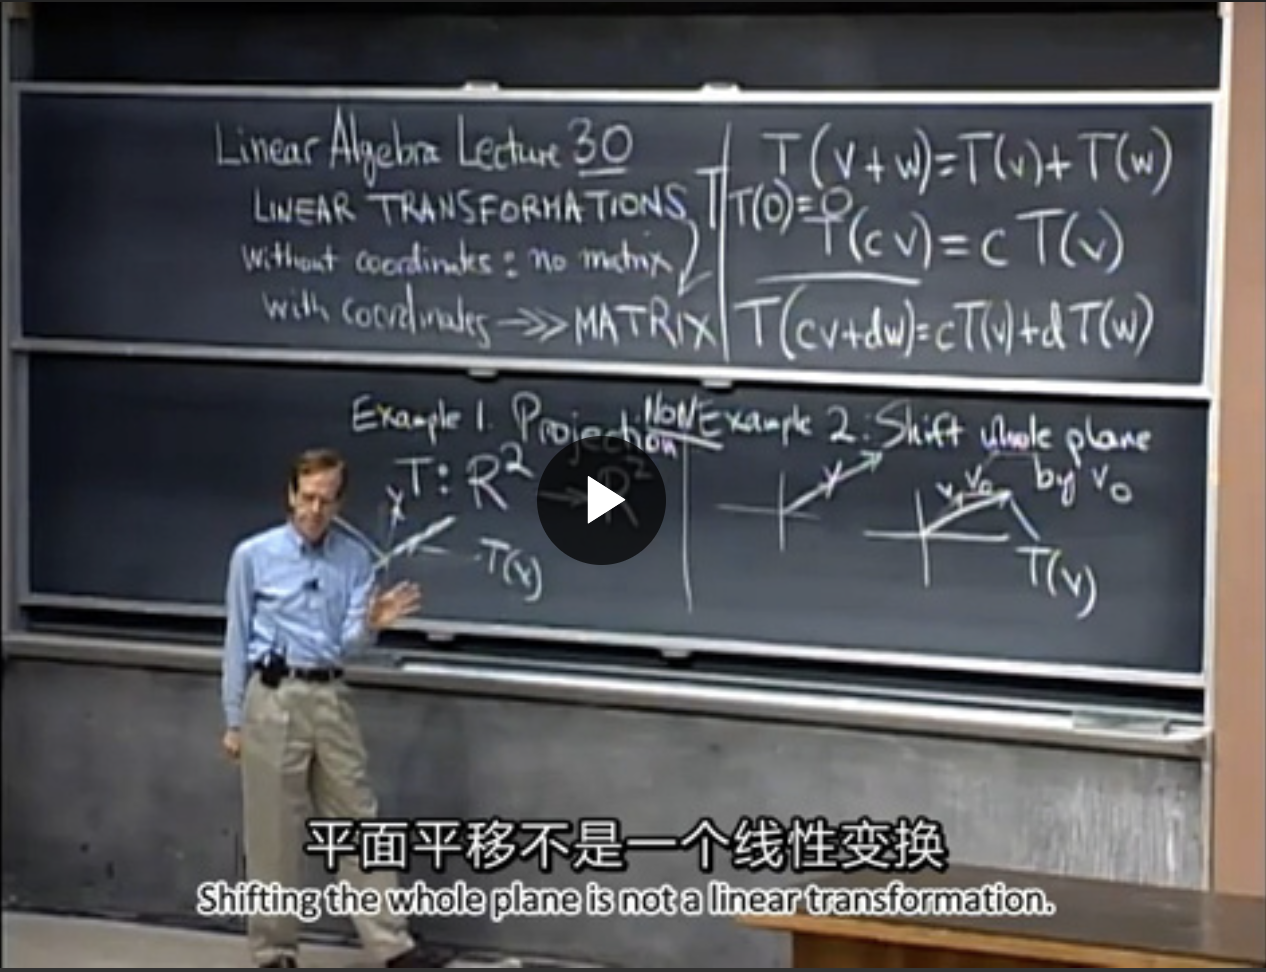 Linear Algebra Lecture 30
LINEAR TRANSFORMATIONS T
without coordinates : no matrix
with coordinates →>> MATRIX
T(v+w)=T(v)+T(w)
T(0)=0
T(cv)=cT(v)
T(cv+dw)=cT(v)+dT(w)
Example 1. Projection
T: R² → R²
v
T(v)
NON Example 2: Shift whole plane
by v₀
v
v v₀
T(v)
平面平移不是一个线性变换
Shifting the whole plane is not a linear transformation.